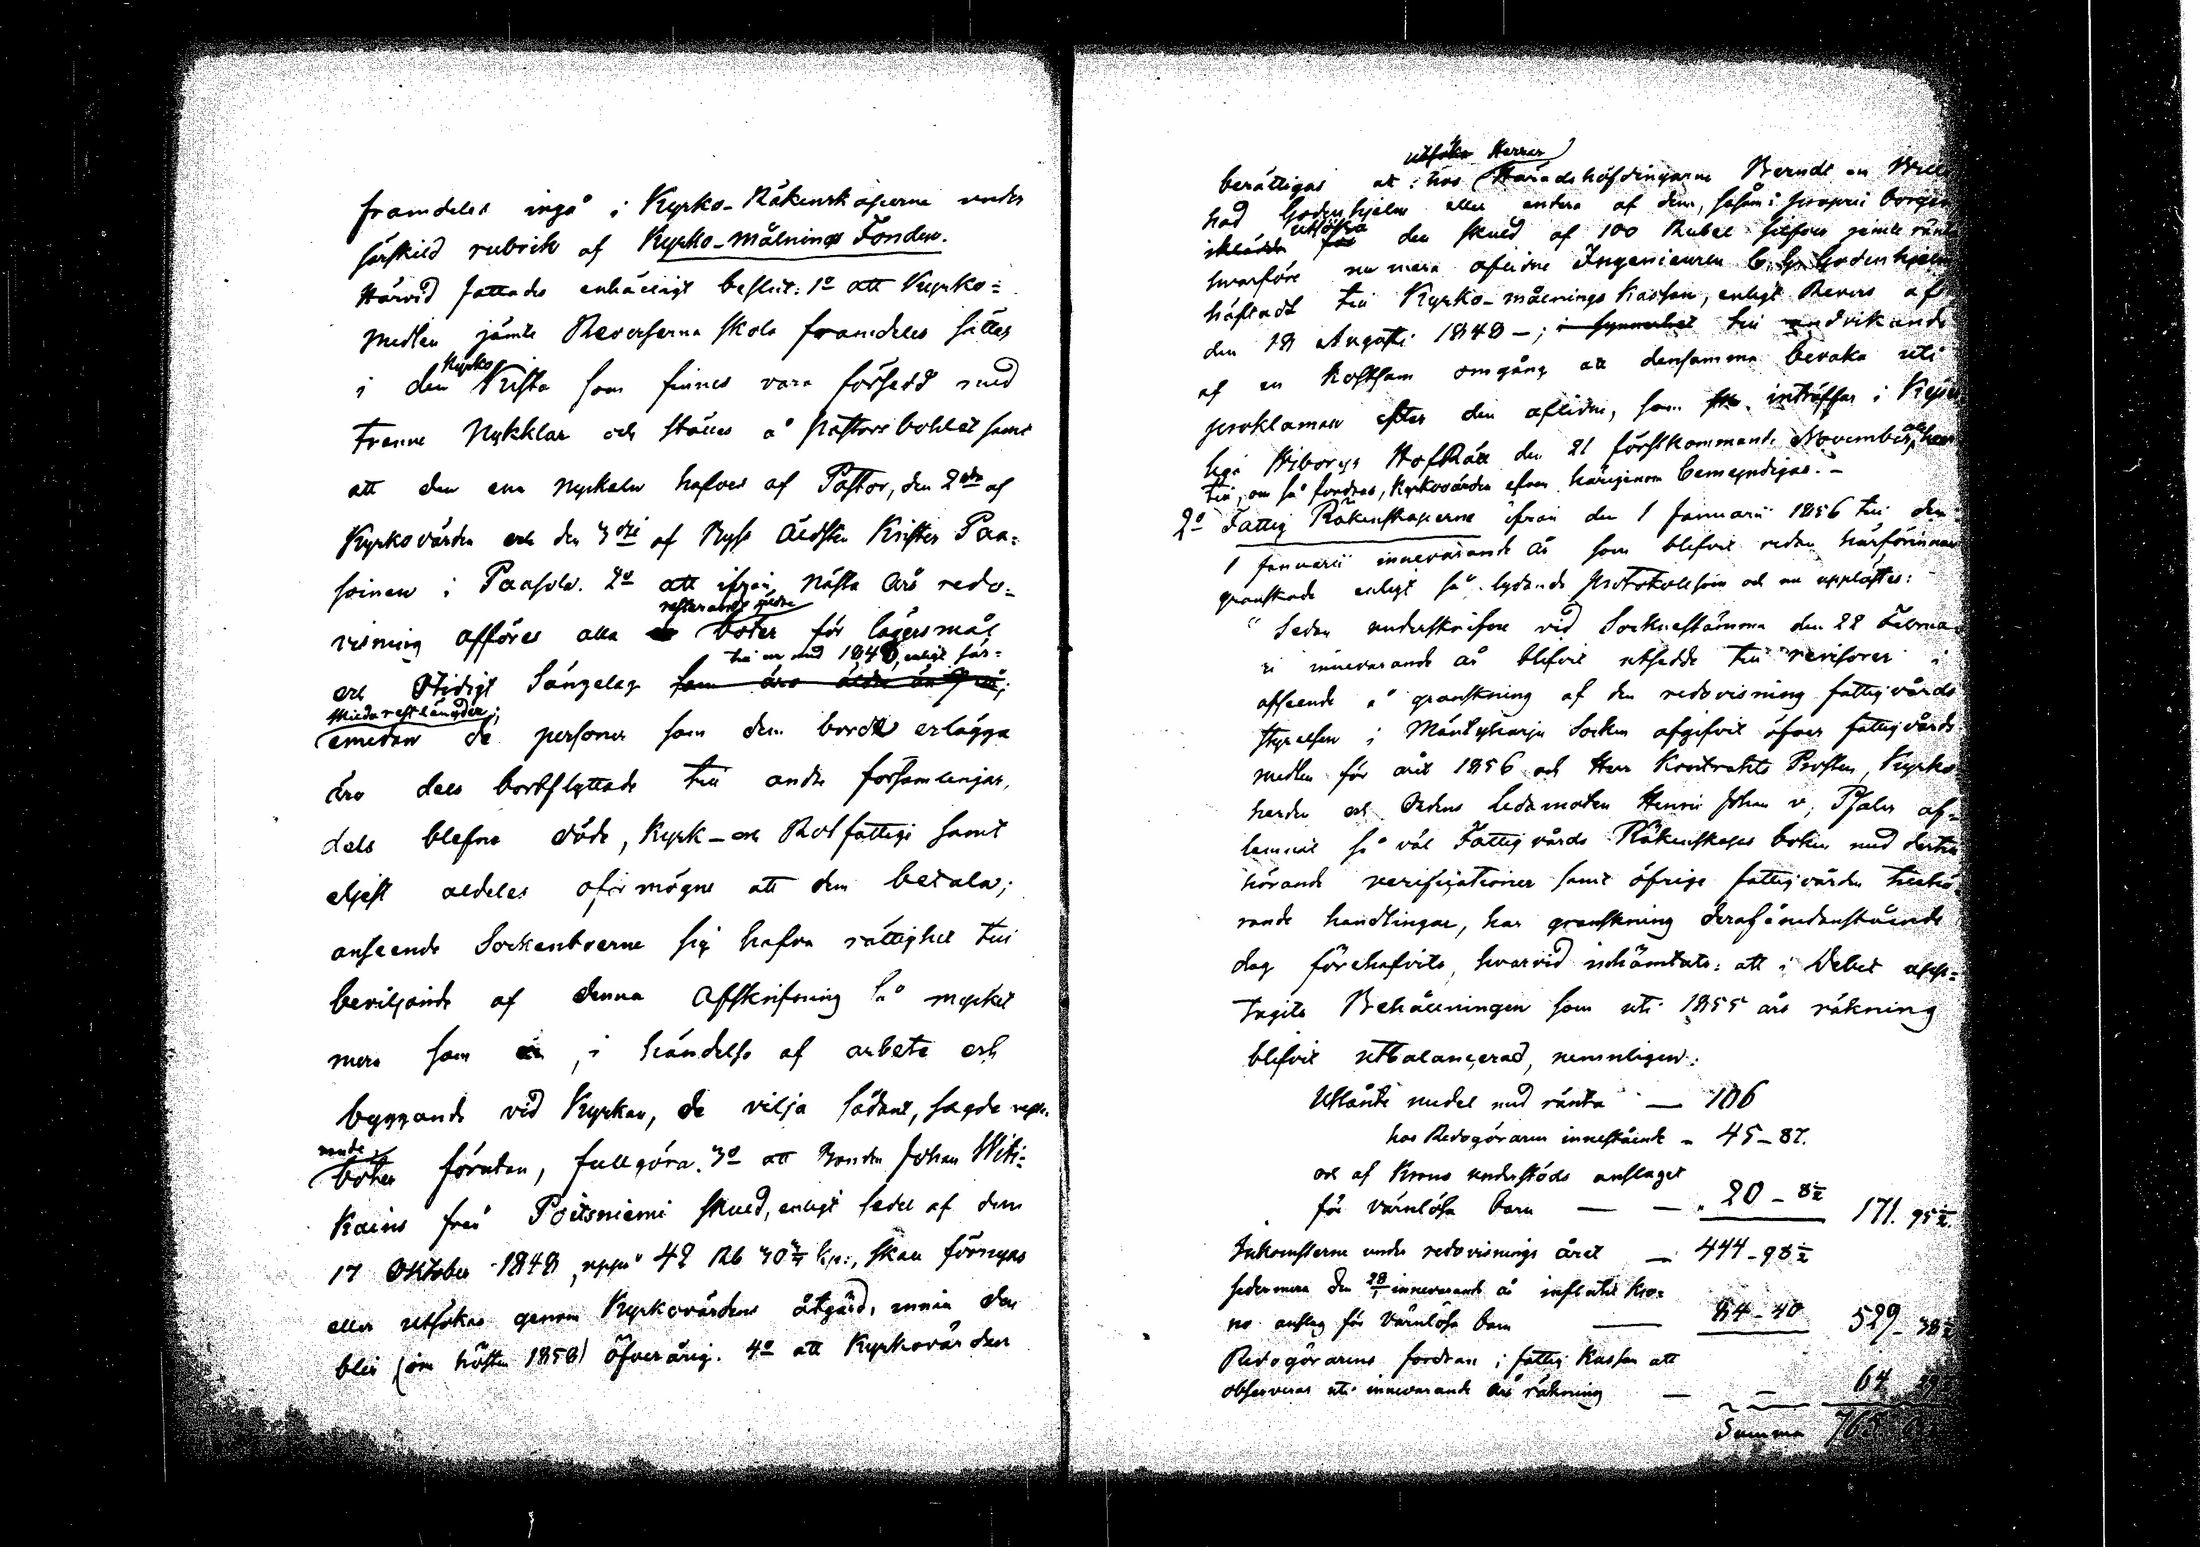 framdeles ingå i Kyrko-Räkenskaperna under
särskild rubrik af Kyrko-målnings Fonden.
Härvid fattades enhälligt beslut: 1o att Kyrko=
medlen jämte Reverserna skola framdeles sättas
i den Kyrko Kista som finnes vara försedd med
trenne Nykklar och ställes å Pastorsbohlet samt
att den ena nyckeln hafves af Pastor, den 2dra af
Kyrkovärden och den 3dje af By Äldsten Krister Paa=
soinen i Paasola. 2o att ifrån nästa års redo=
visning afföres alla resterande böter för lägersmål
till en med 1848, enligt sär=
och Otidigt Sängelag som äro äldre än
skilda restlängder;
emedan de personer som dem bordt erlägga
äro dels bortflyttade till andra församlingar,
dels blefne döde, Kyrk- och Rotfattige samt
eljest aldeles oförmögne att dem betala;
anseende Sockenboerne sig hafva rättighet till
beviljande af denna Afskrifning så mycket
mera som , i händelse af arbete och
byggande vid Kyrkan, de vilja sådant, sagde reste=
rande
böter förutan, fullgöra. 3o att Bonden Johan Witi=
kains från Poitsniemi skuld, enligt sedel af den
17 Oktober 1848, uppå 42 Rb 30 3/7 kp:, skall förnyas
eller utsökas genom Kyrkovärdens åtgärd, innan den
blir (om hösten 1858) öfverårig. 4o att Kyrkovärden
utsöka Herrar
berättigas at hos Häradshöfdingarne Berndt en Will
had Godenhjelm eller endera af dem, såsom i proprii borgen
utsöka den skuld af 100 Rubel silfver jemte ränta
hvarföre nu mera aflidne Ingenieuren C. G. Godenhjelm
häftadt till Kyrko-målnings Kassan, enligt Revers af
den 18 Augusti 1848 -; i synnerhet till undvikande
af en kostsam omgång att densamma bevaka uti
proklaman efter den aflidne, som inträffar i Kejser
liga Wiborgs HofRätt den 21 förstkommande November,
till, om så fordras, Kyrkovärden äfven härigenom bemyndigas. -
2o Fattig Räkenskaperne ifrån den 1 Januarii 1856 till den
1 Januarii innevarande år som blifvit redan härförinnan
granskade enligt så lydande protokoll som och nu upplästes:
"Sedan underskrifne vid Sockenstämma den 22 Februa
ri innevarande år blifvit utsedde till revisorer i
afseende å granskning af den redovisning fattigvårds
styrelsen i Mäntyharju Socken afgifvit öfver fattigvårds
medlen för året 1856 och Herr Kontrakts Prosten, Kyrko
herden och Ordens Ledamoten Henric Johan v. Pfaler af=
lemnat så väl Fattigvårds Räkenskaps boken med dertill
hörande verificationer samt öfrige fattigvården tillhö=
rande handlingar, har granskning deraf å nedanstående
dag förehafvits, hvarvid inhämtats: att i Debet upp=
tagits Behållningen som uti 1855 års räkning
blifvit utbalancerad, nemnligen:
Utlånte medel med ränta — 106
hos Redogöraren innestående - 45-87.
och af Krono understöds anslaget
för värnlösa barn — — . 20-8 1/2 171. 95 1/2.
Inkomsterne under redovisnings året — 444-98 1/2
sedermera den innevarande år influtit Kro=
no anslag för värnlösa barn — 84-40 529-38 1/2
Redogörarens fordran i fattig Kassan att
observeras uti innevarande års räkning — — 64
Summa 765